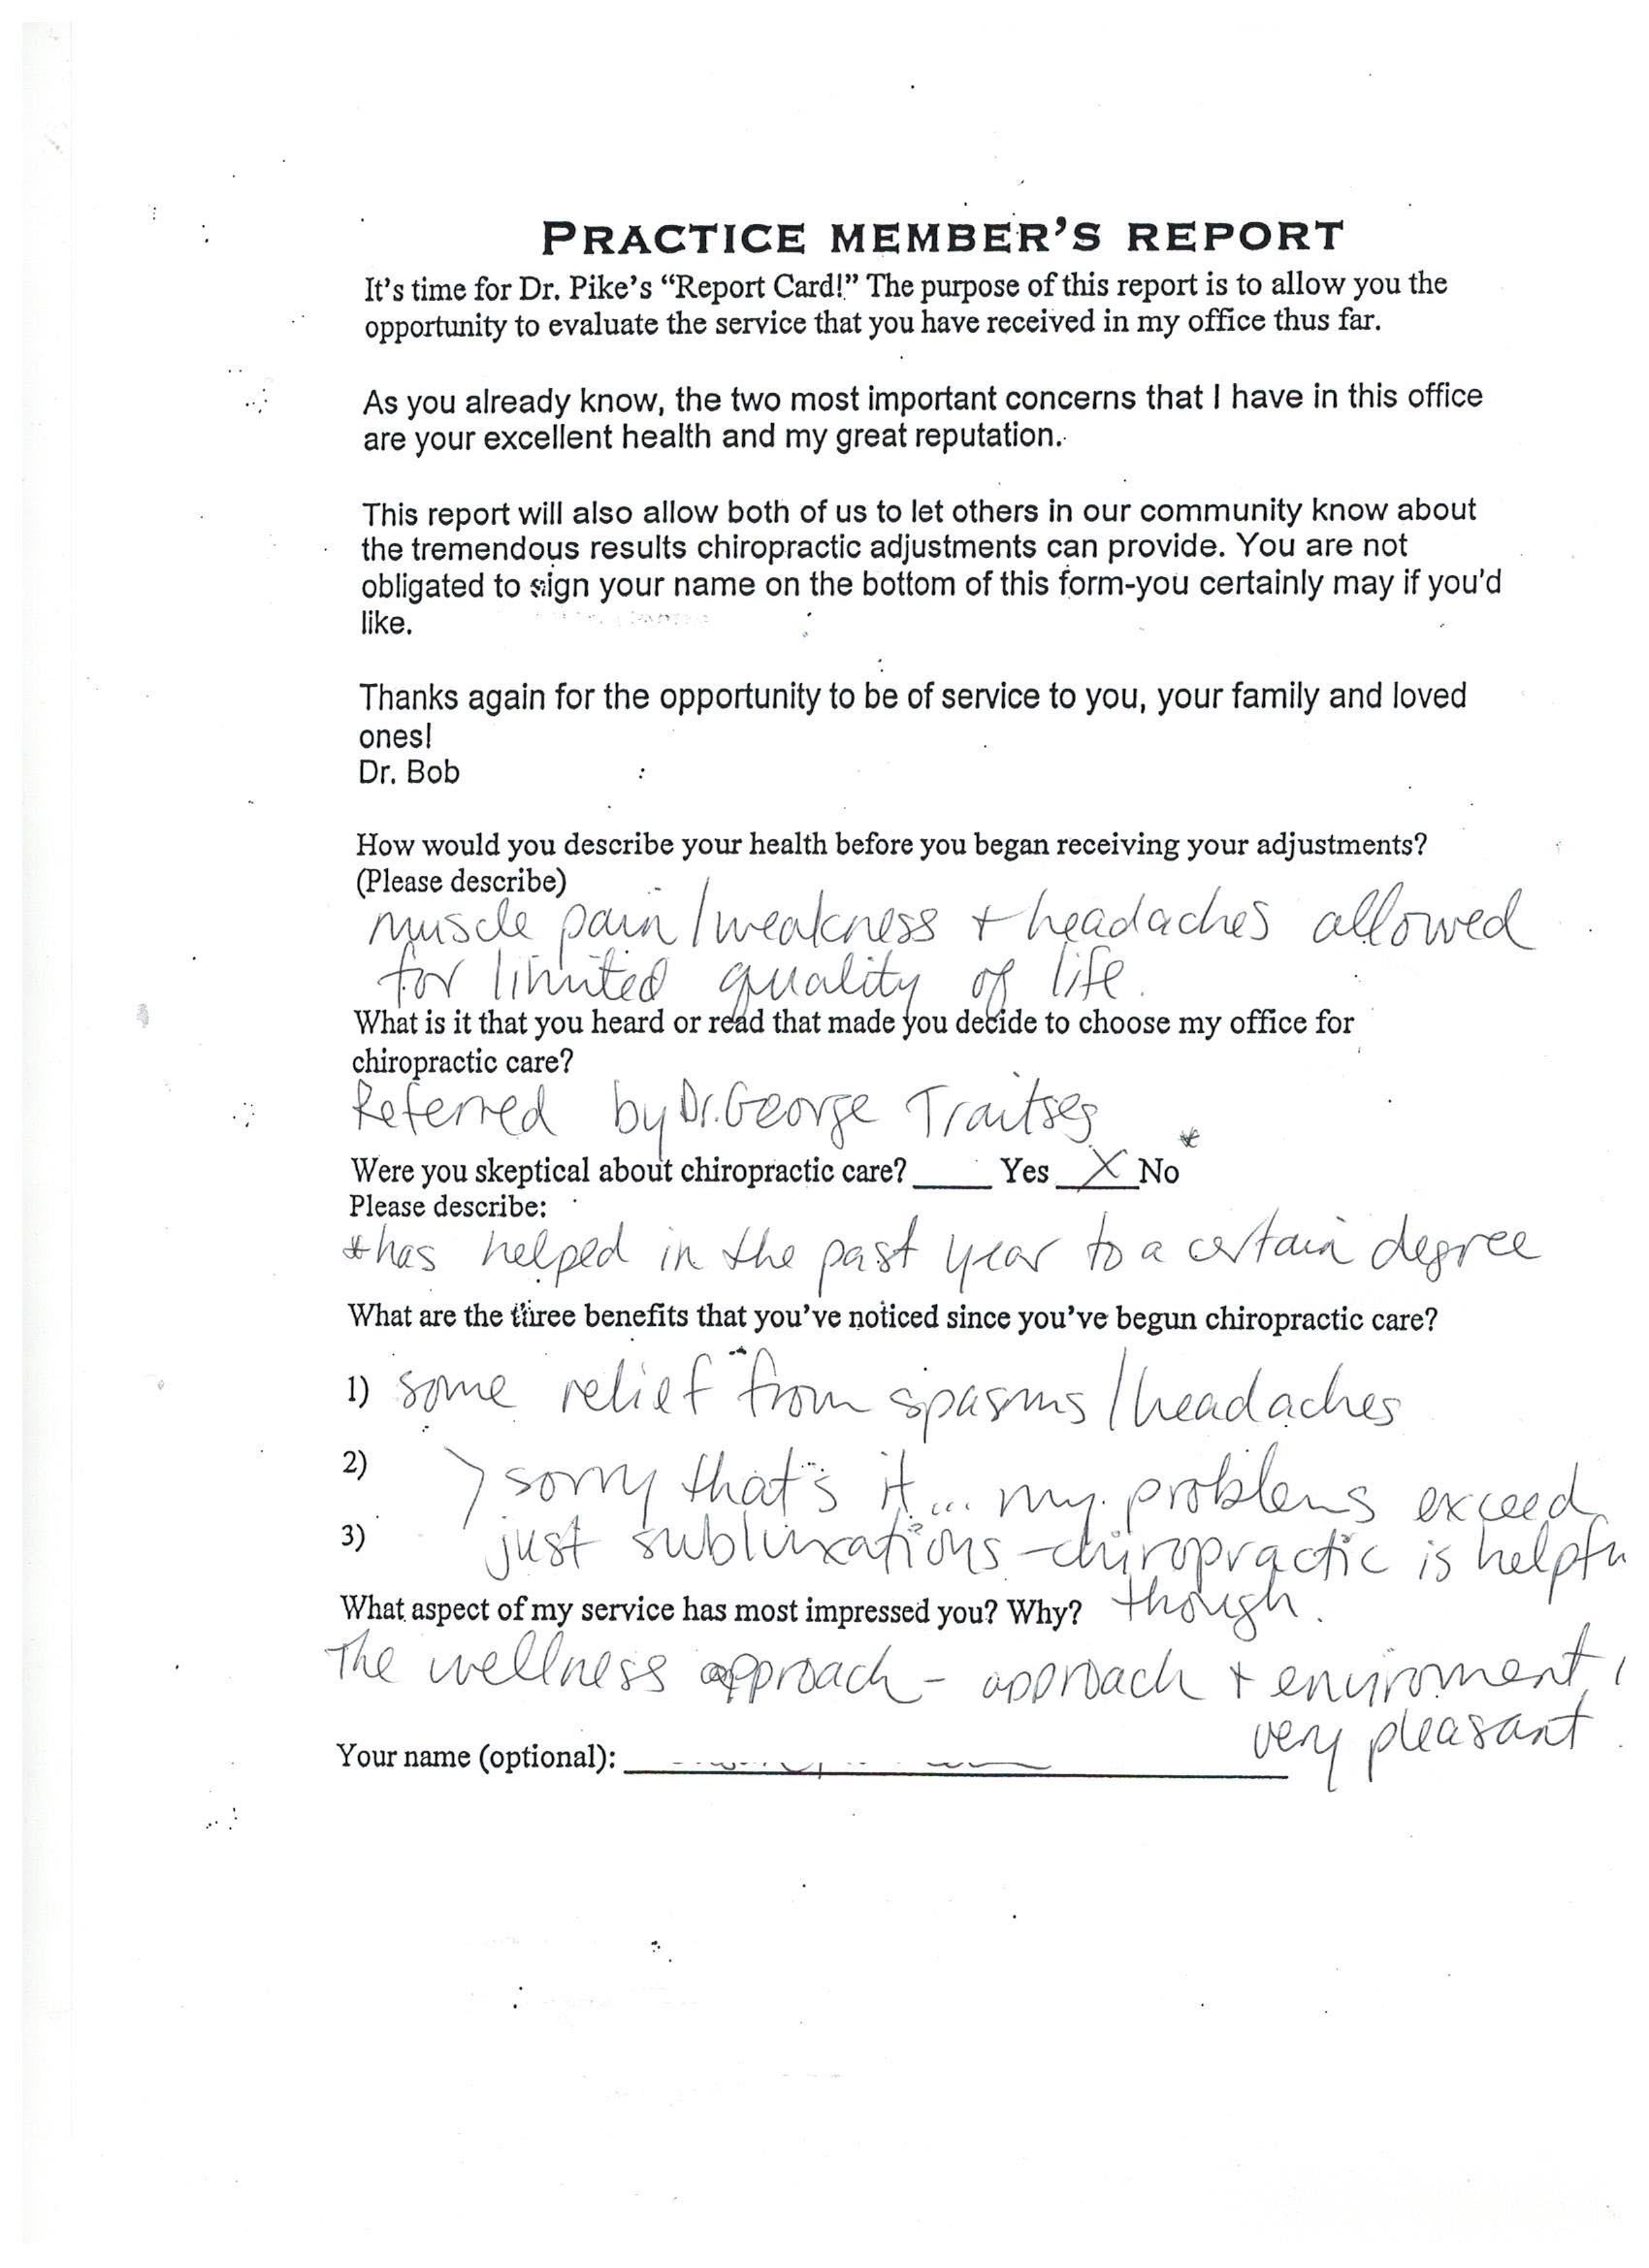 PRACTICE MEMBER'S REPORT
It's time for Dr. Pike's “Report Card!” The purpose of this report is to allow you the
opportunity to evaluate the service that you have received in my office thus far.
As you already know, the two most important concerns that I have in this office
are your excellent health and my great reputation.
This report will also allow both of us to let others in our community know about
the tremendous results chiropractic adjustments can provide. You are not
obligated to sign your name on the bottom of this form-you certainly may if you'd
like.
Thanks again for the opportunity to be of service to you, your family and loved
ones!
Dr. Bob
How would you describe your health before you began receiving your adjustments?
(Please describe)
muscle pain/weakness + headaches allowed
for limited quality of life.
What is it that you heard or read that made you decide to choose my office for
chiropractic care?
Referred by Dr. George Traitses
Were you skeptical about chiropractic care? ____ Yes X No *
Please describe:
*has helped in the past year to a certain degree
What are the three benefits that you've noticed since you've begun chiropractic care?
1) some relief from spasms/headaches
2) > sorry that's it... my problems exceed
3) just subluxations - chiropractic is helpfu
though.
What aspect of my service has most impressed you? Why?
The wellness approach - approach + enviroment,
very pleasant.
Your name (optional):